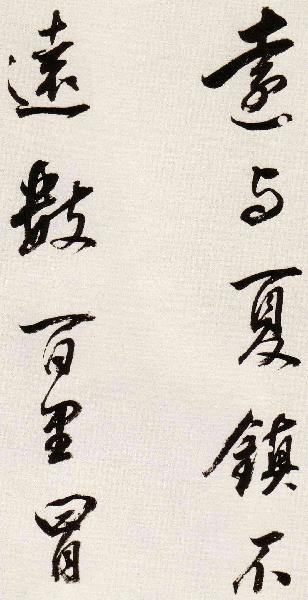 与夏鎮不
遠數百里冒